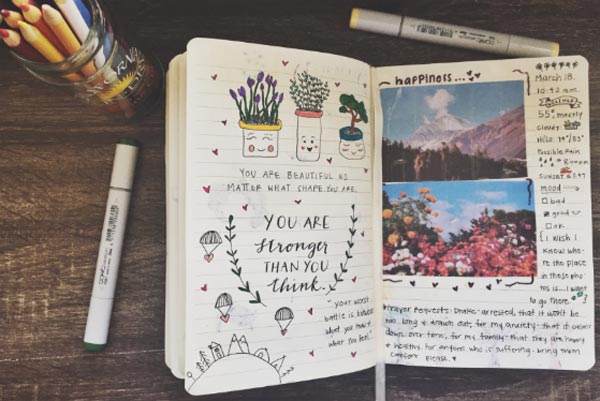 YOU ARE BEAUTIFUL NO
MATTER WHAT SHAPE YOU ARE.
YOU ARE
stronger
THAN YOU
think.
"your worst
battle is between
what you know &
what you feel."
happiness...
March 18.
10:42 a.m.
55° mostly
cloudy
Hi/Lo
Possible Rain
Sunset
mood
bad
good
ok
I wish I
knew whe-
re the place
in these pho-
tos is... I want
to go there
Prayer Requests- Drake- arrested, that it won't be
too long & drawn out, for my anxiety- that it calms
down over time, for my family- that they are happy
& healthy. for anyone who is suffering- bring them
comfort please.